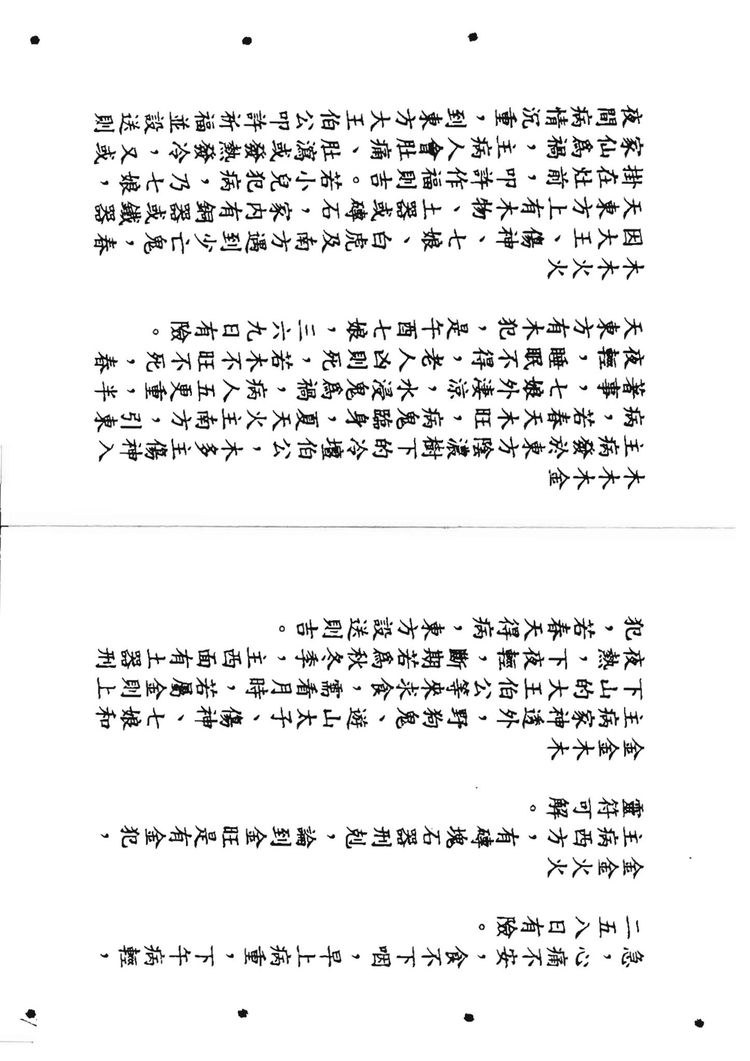 急，心痛不安，食不下咽，早上病重，下午病輕，
二五八日有險。
金金火火
主病西方，有磚塊石器刑剋，論到金旺是有金犯，
靈符可解。
金金木木
主病家神透外，野狗鬼、遊山太子、傷神、七娘和
下山的大王伯公等來求食，需看月時，若屬金則上
夜熱，下夜輕，斷期若爲秋冬季，主西面有土器刑
犯，若春天得病，東方設送則吉。
木木木金
主病發於東方陰濃樹下的冷壇伯公，木多主傷神入
病，若春天木旺，病鬼臨身，夏天火主南方，引東
著事，七娘外淒涼，水浸鬼爲禍，病人五更重，半
夜輕，睡眠不得，老人凶則死，若木不旺不死，春
天東方有木犯，是午酉七娘，三六九日有險。
木木火火
因大王、傷神、七娘、白虎及南方遇到少亡鬼，春
天東方上有木物、土器或磚石，家內有銅器或鐵器
掛在灶前，叩許作福則吉。若小兒犯病，乃七娘，
家仙爲禍，主病人會肚痛、肚瀉或發熱發冷，又或
夜間病情沉重，到東方大王伯公叩許祈福並設送則